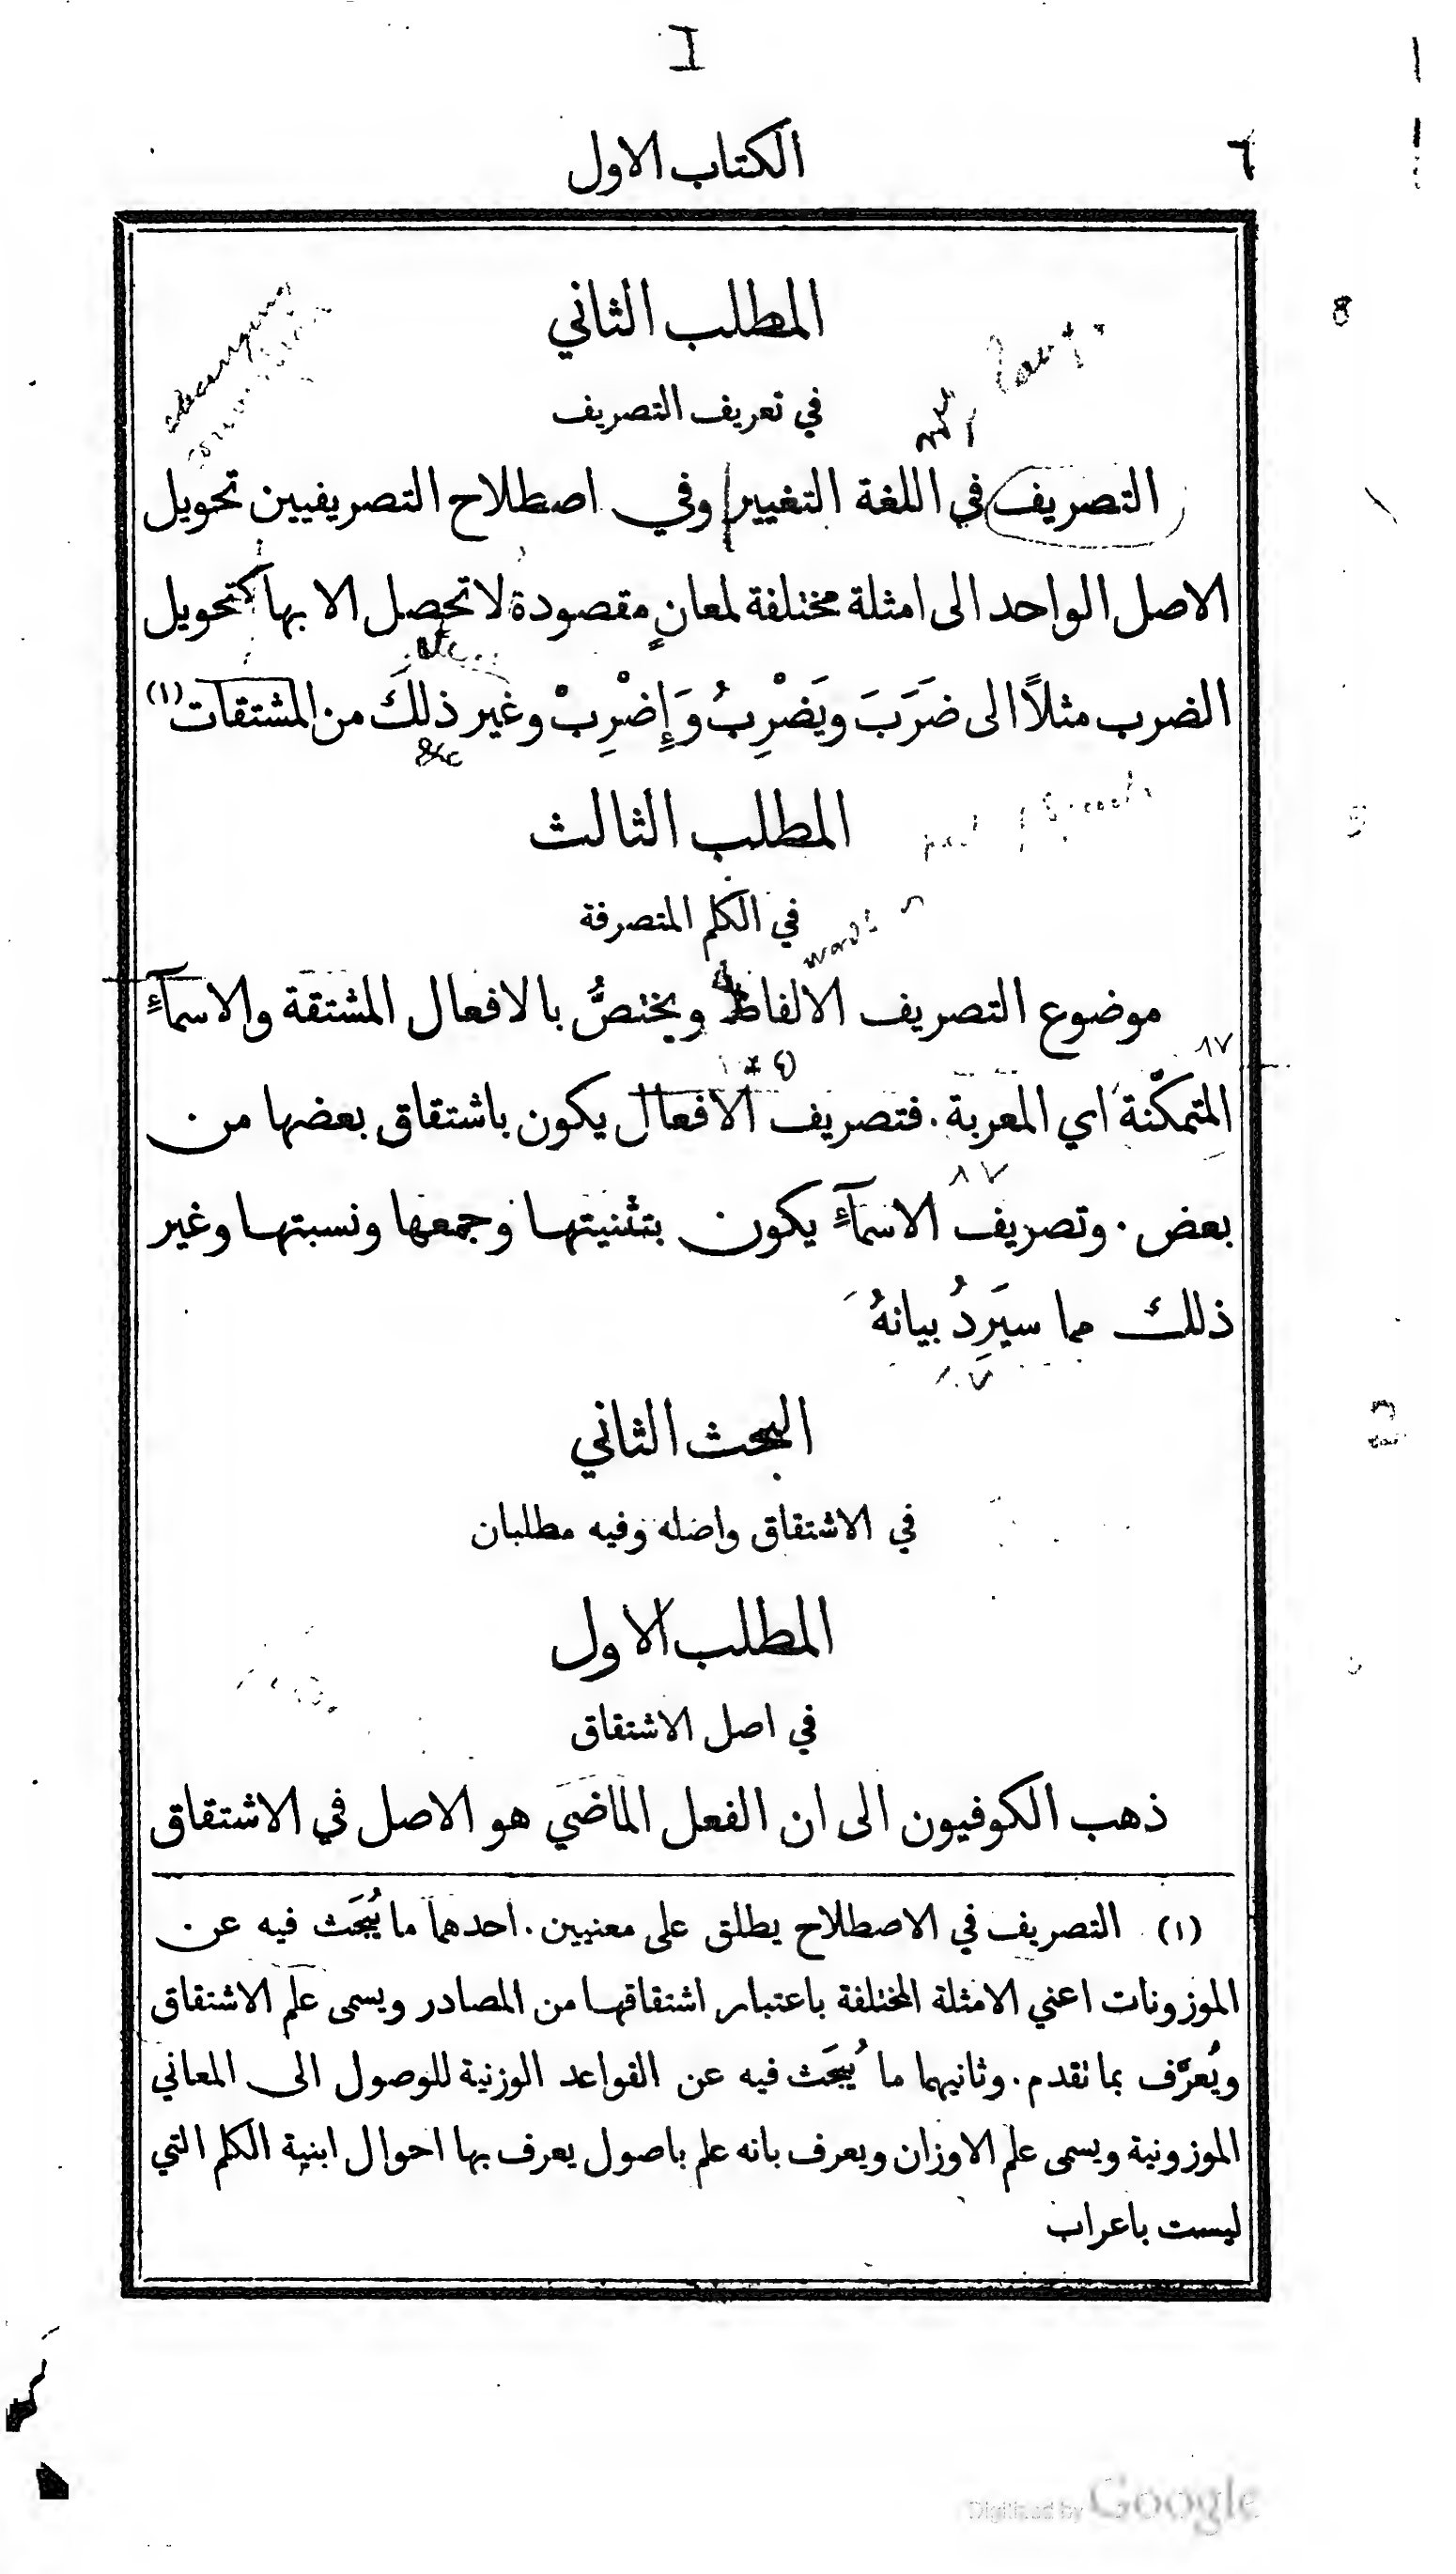 I
٦
الكتاب الاول
المطلب الثاني
في تعريف التصريف
التصريف في اللغة التغيير وفي اصطلاح التصريفيين تحويل
الاصل الواحد الى امثلة مختلفة لمعانٍ مقصودة لا تحصل الا بها كتحويل
الضرب مثلاً الى ضَرَبَ ويَضْرِبُ وَإِضْرِبْ وغير ذلكَ من المشتقات (١)
&c
المطلب الثالث
في الكلم المتصرفة
words
موضوع التصريف الالفاظ ويختصُّ بالافعال المشتقة والاسمآءِ
٨٧
المتمكّنة اي المعربة. فتصريف الافعال يكون باشتقاق بعضها من
٨٧
بعض. وتصريف الاسمآءِ يكون بتثنيتها وجمعها ونسبتها وغير
ذلك مما سيَرِدُ بيانهُ
البحث الثاني
في الاشتقاق واصله وفيه مطلبان
المطلب الاول
في اصل الاشتقاق
ذهب الكوفيون الى ان الفعل الماضي هو الاصل في الاشتقاق
(١) التصريف في الاصطلاح يطلق على معنيين. احدهما ما يُبحَث فيه عن
الموزونات اعني الامثلة المختلفة باعتبار اشتقاقها من المصادر ويسمى علم الاشتقاق
ويُعرَّف بما تقدم. وثانيهما ما يُبحَث فيه عن القواعد الوزنية للوصول الى المعاني
الموزونية ويسمى علم الاوزان ويعرف بانه علم باصول يعرف بها احوال ابنية الكلم التي
ليست باعراب
Digitized by Google